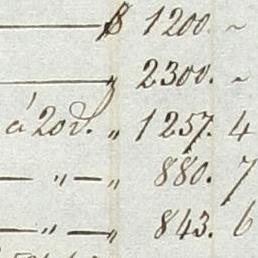 — ß 1200. ~
— „ 2300. ~
á 20d. „ 1257. 4
— „ — „ 880. 7
— „ — „ 843. 6